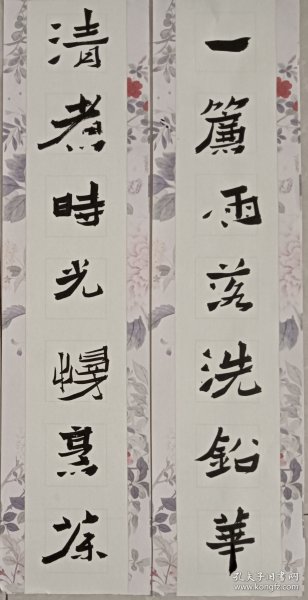 一簾雨落洗鉛華
清煮時光慢烹茶
孔夫子旧书网